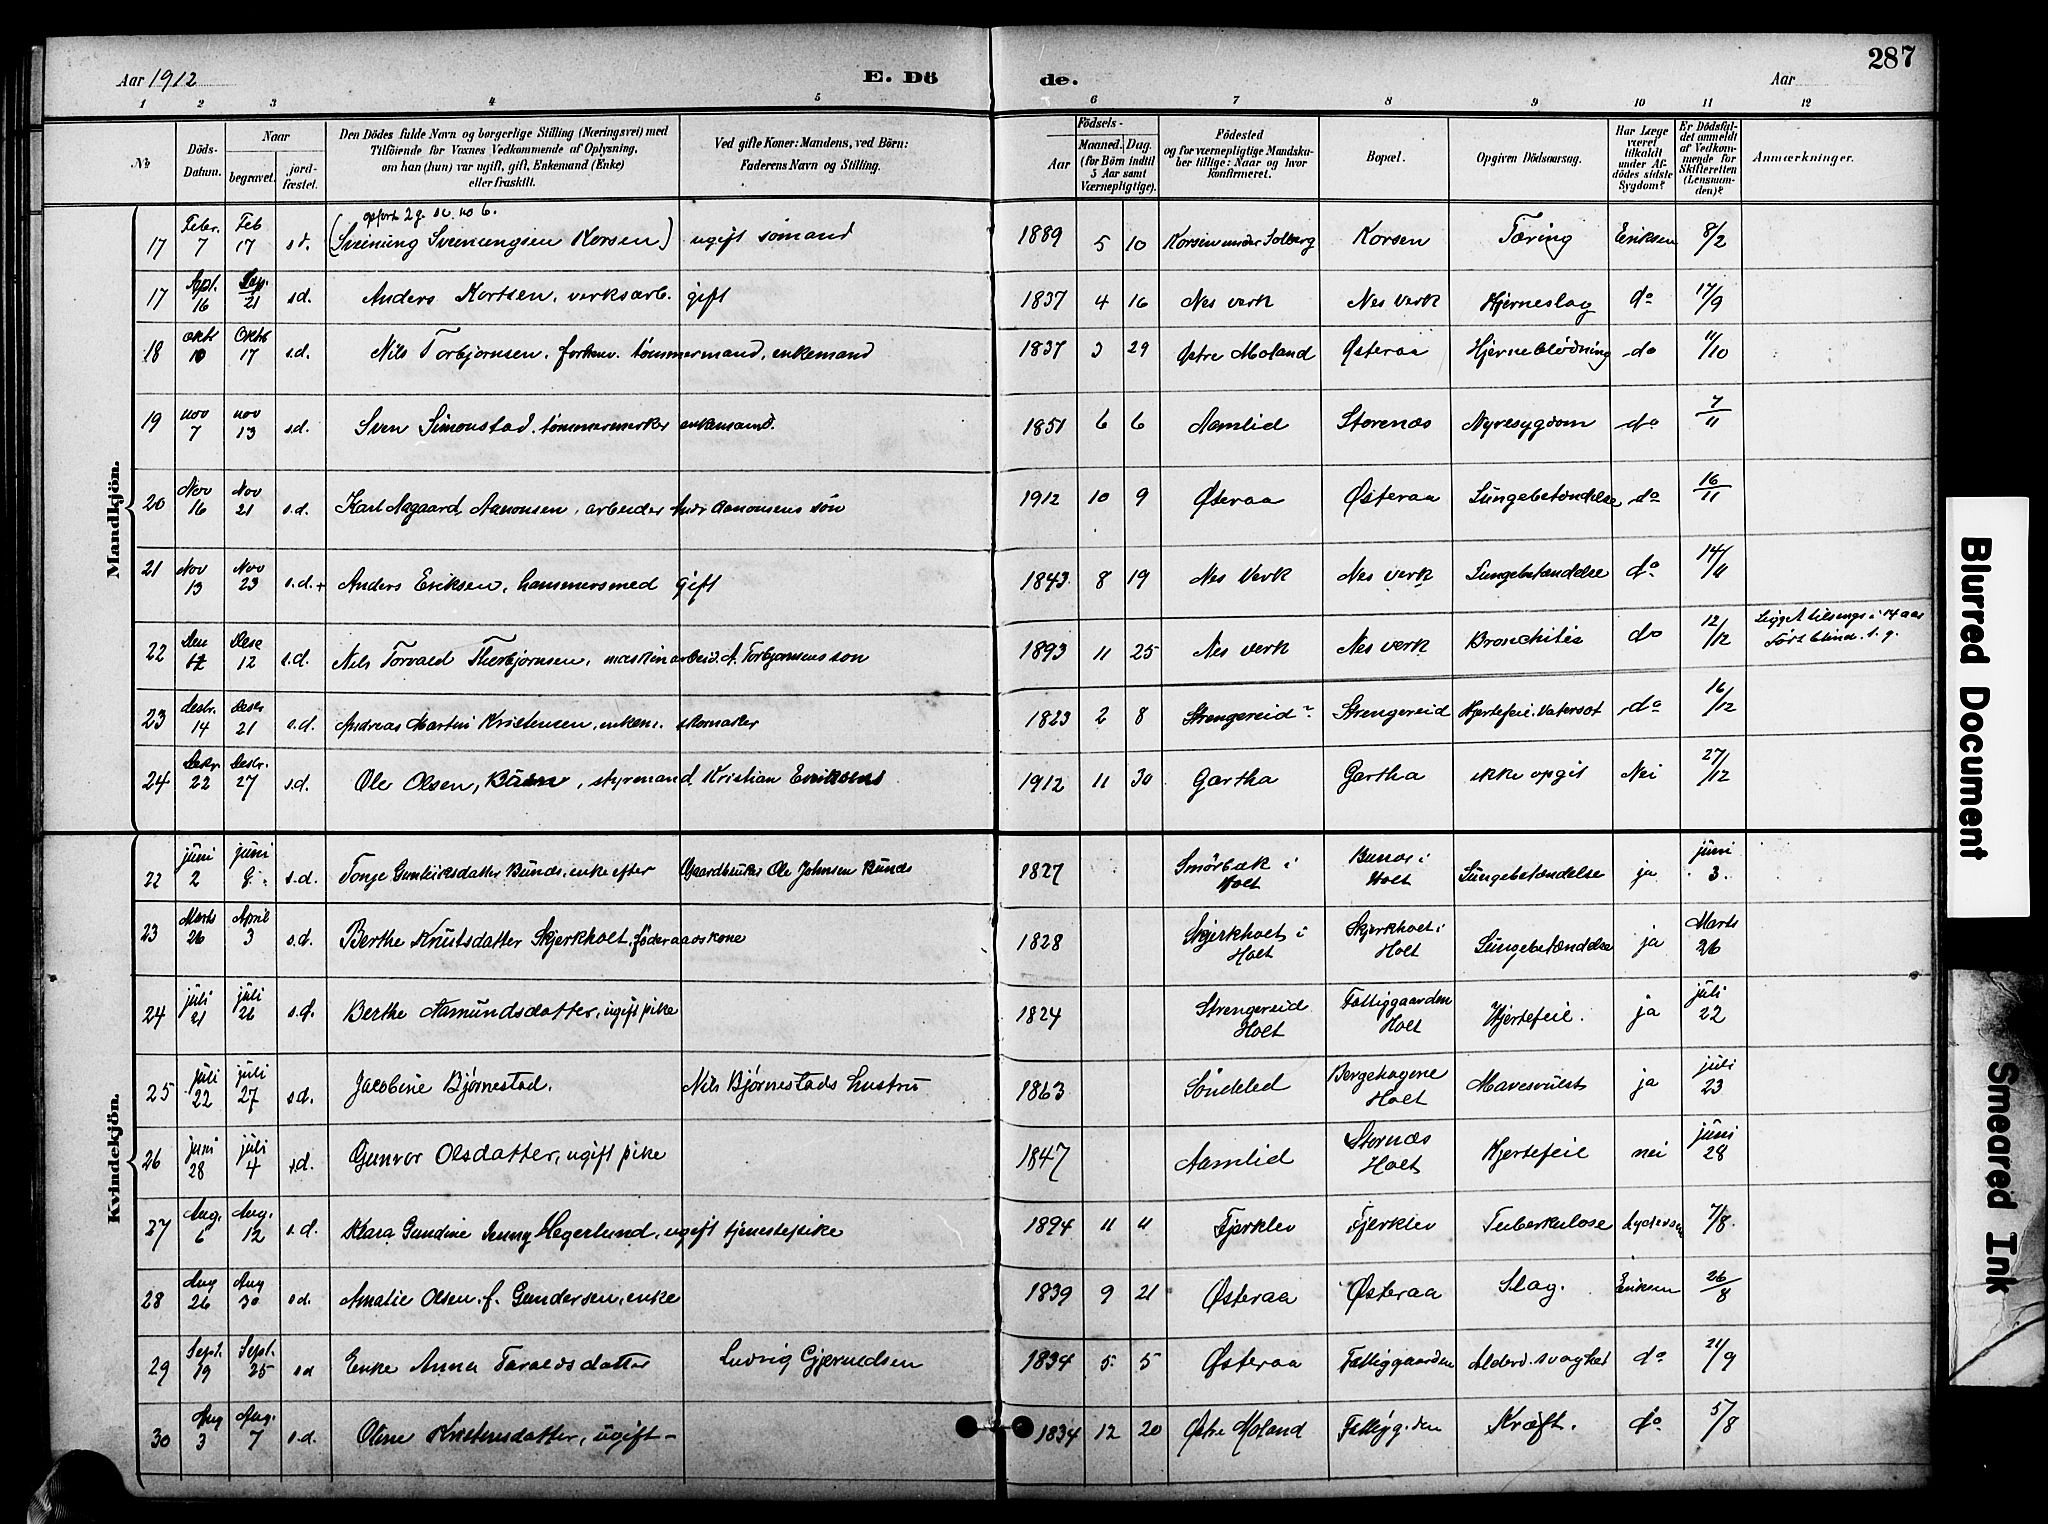 Aar 1912
E. Dö
de.
Aar
287
1 2 3 4 5 6 7 8 9 10 11 12
No
Döds-
Datum.
Naar
begravet.
jord-
fæstet.
Den Dödes fulde Navn og borgerlige Stilling (Næringsvei) med
Tilföiende for Voxnes Vedkommende af Oplysning,
om han (hun) var ugift, gift, Enkemand (Enke)
eller fraskilt.
Ved gifte Koner: Mandens, ved Börn:
Faderens Navn og Stilling.
Födsels-
Aar
Maaned. Dag.
(for Börn indtil
5 Aar samt
Værnepligtige).
Födested
og for værnepligtige Mandska-
ber tillige: Naar og hvor
konfirmeret.
Bopæl.
Opgiven Dödsaarsag.
Har Læge
været
tilkaldt
under Af-
dödes sidste
Sygdom?
Er Dödsfal-
det anmeldt
af Vedkom-
mende for
Skifteretten
(Lensman-
den)?
Anmærkninger.
Mandkjön.
17 Febr. 7 Feb 17 s.d. (Sveinung Sveinungsen Korsen) ugift sømand 1889 5 10 Korsen under Solberg Korsen Tæring Eriksen 8/2
17 16 21 s.d. Anders Kortsen, verksarb. gift 1837 4 16 Nes verk Nes verk Hjerneslag do 17/9
18 Oktb 10 Oktb 17 s.d. Nils Torbjørnsen, forhenv. tømmermand, enkemand 1837 3 29 Østre Moland Østeraa Hjerneblødning do 11/10
19 nov 7 nov 13 s.d. Sven Simonstad, tømmermerker enkemand. 1851 6 6 Aamlid Storenæs Nyresygdom do 7/11
20 Nov 16 Nov 21 s.d. Karl Aagaard Aanonsen, arbeider Aanonsens søn 1912 10 9 Østeraa Østeraa Lungebetændelse do 16/11
21 Nov 13 Nov 23 s.d. Anders Eriksen, hammersmed gift 1843 8 19 Nes Verk Nes verk Lungebetændelse do 14/11
22 12 Dese 12 s.d. Nils Torvald Thorbjørnsen, maskinarbeid. N. Torbjørnsens søn 1893 11 25 Nes verk Nes verk Bronchitis do 12/12 Ligget tilsengs i 14 aar
blind
23 Desbr. 14 21 s.d. Andreas Martin Kristensen, enkem. skomaker 1823 2 8 Strengereid Strengereid Hjertefeil. Vatersot do 16/12
24 22 Desbr. 27 s.d. Ole Olsen, styrmand Kristian Eriksens 1912 11 30 Gartha Gartha ikke opgit Nei 27/12
Kvindekjön.
22 juni 2 juni 9. s.d. Tonje Bunæs, enke efter Gaardbruker Ole Johnsen Bunæs 1827 Smörbæk i
Holt Bunæs i
Holt Lungebetændelse ja juni 3.
23 Marts 26 April 3 s.d. Berthe Knutsdatter Skjerkholt, föderaadskone 1828 Skjerkholt i
Holt Skjerkholt i
Holt Lungebetændelse ja Marts 26
24 juli 21 juli 26 s.d. Berthe Aamundsdatter, ugift pike 1824 Strengereid
Holt Fattiggaarden
Holt Hjertefeil. ja juli 22
25 juli 22 juli 27 s.d. Jacobine Bjørnestad. Nils Bjørnestads hustru 1863 Søndeled Bergehagene
Holt Mavesvulst ja juli 23
26 juni 28 juli 4 s.d. Gunvor Olsdatter, ugift pike 1847 Aamlid Stornæs
Holt Hjertefeil nei juni 28
27 Aug. 6 Aug. 12 s.d. Klara Gundine Jenny Hegerlund, ugift tjenestepike 1894 11 11 Fjerklev Fjerklev Tuberkulose 7/8.
28 Aug 26 Aug 30 s.d. Amalie Olsen f. Gundersen, enke 1839 9 21 Østeraa Østeraa Slag. Eriksen 26/8
29 Sept. 19 Sept. 25 s.d Enke Anna Taraldsdatter Ludvig Gjeruldsen 1834 5 5 Østeraa Fattiggaarden Alderd. svaghet do 21/9
30 Aug 3 Aug. 7 s.d. Oline Kristensdatter, ugift 1834 12 20 Østre Moland Fattigg.den Kræft. do 5/8
Blurred Document
Smeared Ink